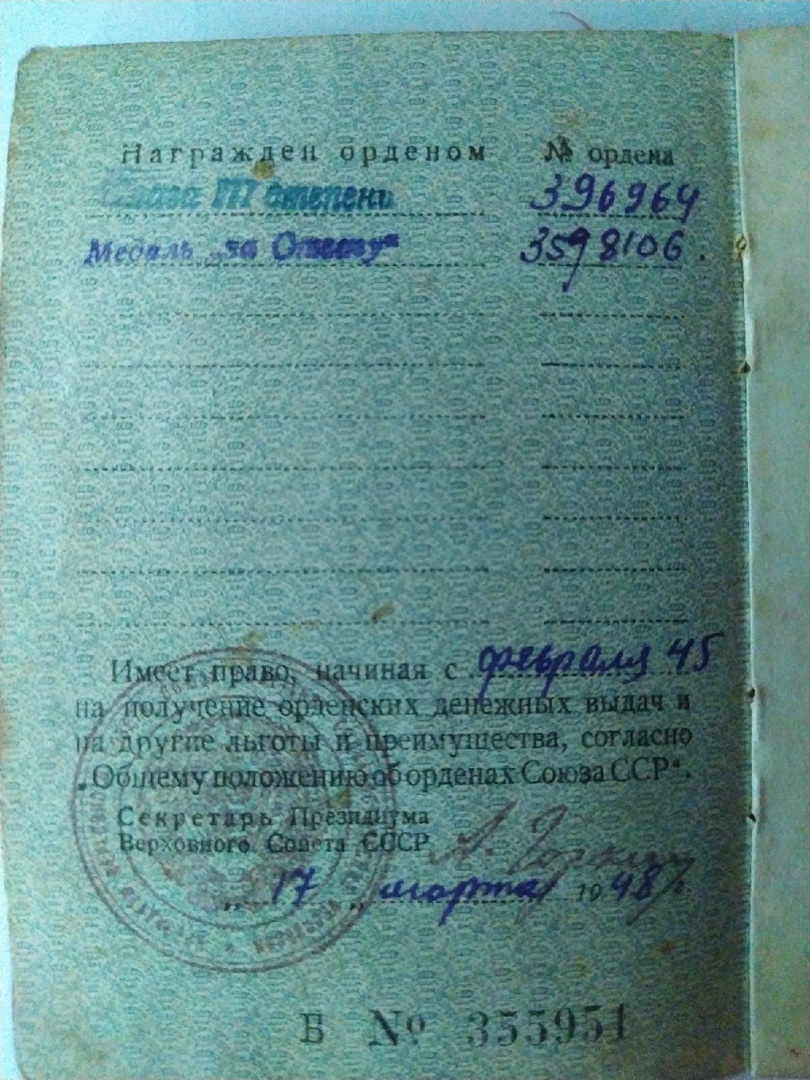 Награжден орденом № ордена
Слава III степени 396964
Медаль „за Отвагу“ 3598106.
Имеет право, начиная с февраля 45
на получение орденских денежных выдач и
на другие льготы и преимущества, согласно
„Общему положению об орденах Союза ССР“.
Секретарь Президиума
Верховного Совета СССР А. Горкин
„17„ марта 1948 г.
Б № 355951